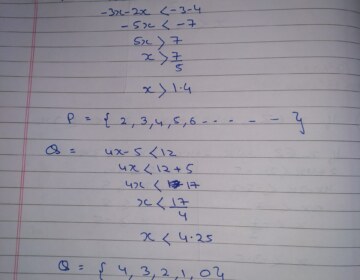 -3x-2x < -3-4
-5x < -7
5x > 7
x > 7/5
x > 1.4
P = { 2, 3, 4, 5, 6 - - - - - - }
Q = 4x-5 < 12
4x < 12+5
4x < 17
x < 17/4
x < 4.25
Q = { 4, 3, 2, 1, 0 }